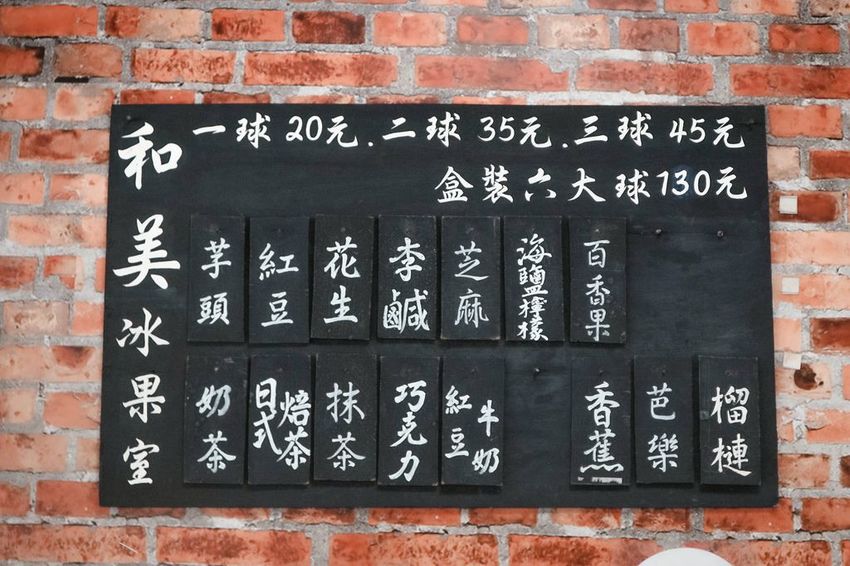 和美冰果室
一球20元.二球35元.三球45元
盒裝六大球130元
芋頭
紅豆
花生
李鹹
芝麻
海鹽檸檬
百香果
奶茶
日式焙茶
抹茶
巧克力
紅豆牛奶
香蕉
芭樂
榴槤